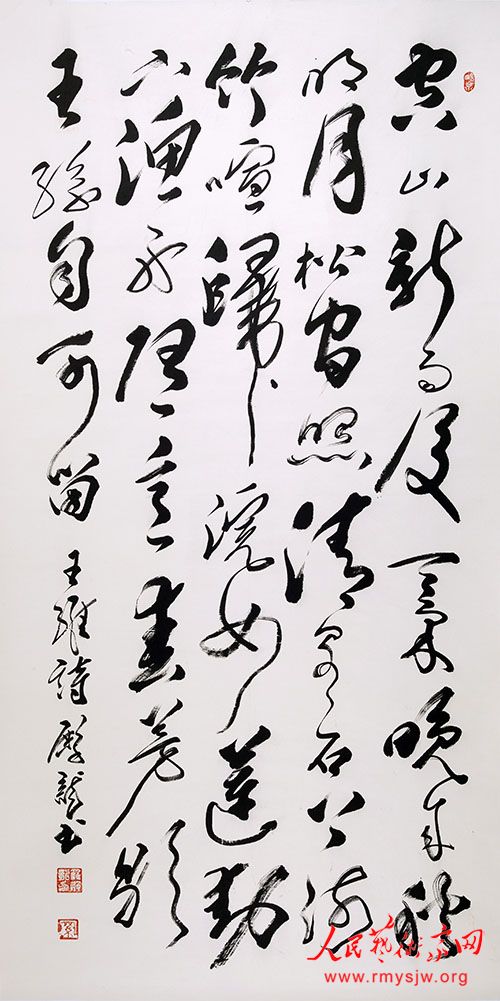 空山新雨後天氣晚來秋
明月松間照清泉石上流
竹喧歸浣女蓮動
下漁舟隨意春芳歇
王孫自可留
王維詩 書
人民藝術家网
www.rmysjw.org